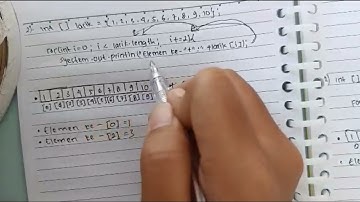 int [] larik = {1, 2, 3, 4, 5, 6, 7, 8, 9, 10};
for (int i=0; i < larik.length; i+=2){
System.out.println("Elemen ke-"+i+" "+larik[i]);
1 2 3 4 5 6 7 8 9 10
[0] [1] [2] [3] [4] [5] [6] [7] [8] [9]
• Elemen ke - [0] = 1
• Elemen ke - [2] = 3